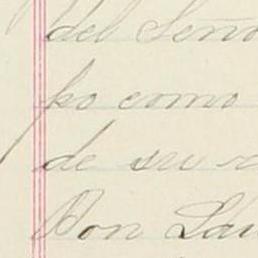 del Seño
po como
de su
Don Lau